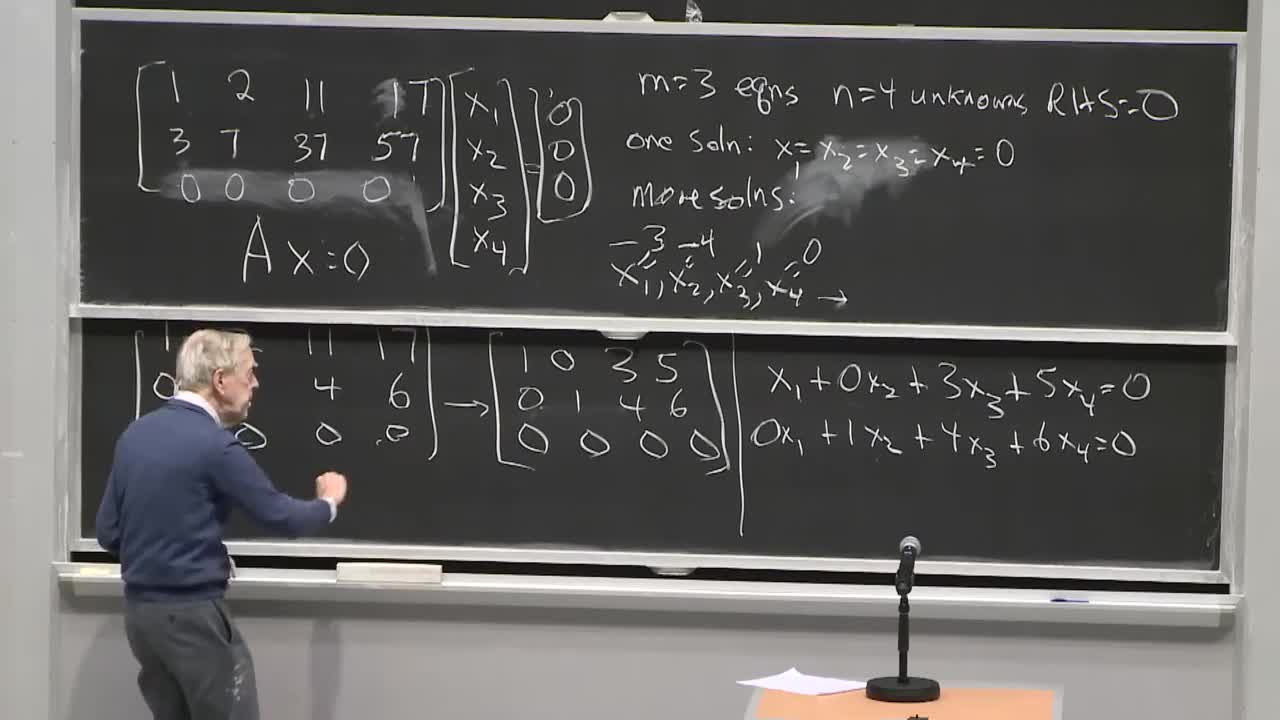 1 2 11 17 x₁ 0
3 7 37 57 x₂ = 0
0 0 0 0 x₃ 0
x₄
A x = 0
m=3 eqns n=4 unknowns RHS=0
one soln: x₁=x₂=x₃=x₄=0
more solns:
-3 -4 1 0
x₁, x₂, x₃, x₄ →
1 11 17
0 4 6
0 0 0
→
1 0 3 5
0 1 4 6
0 0 0 0
x₁+0x₂+3x₃+5x₄=0
0x₁+1x₂+4x₃+6x₄=0